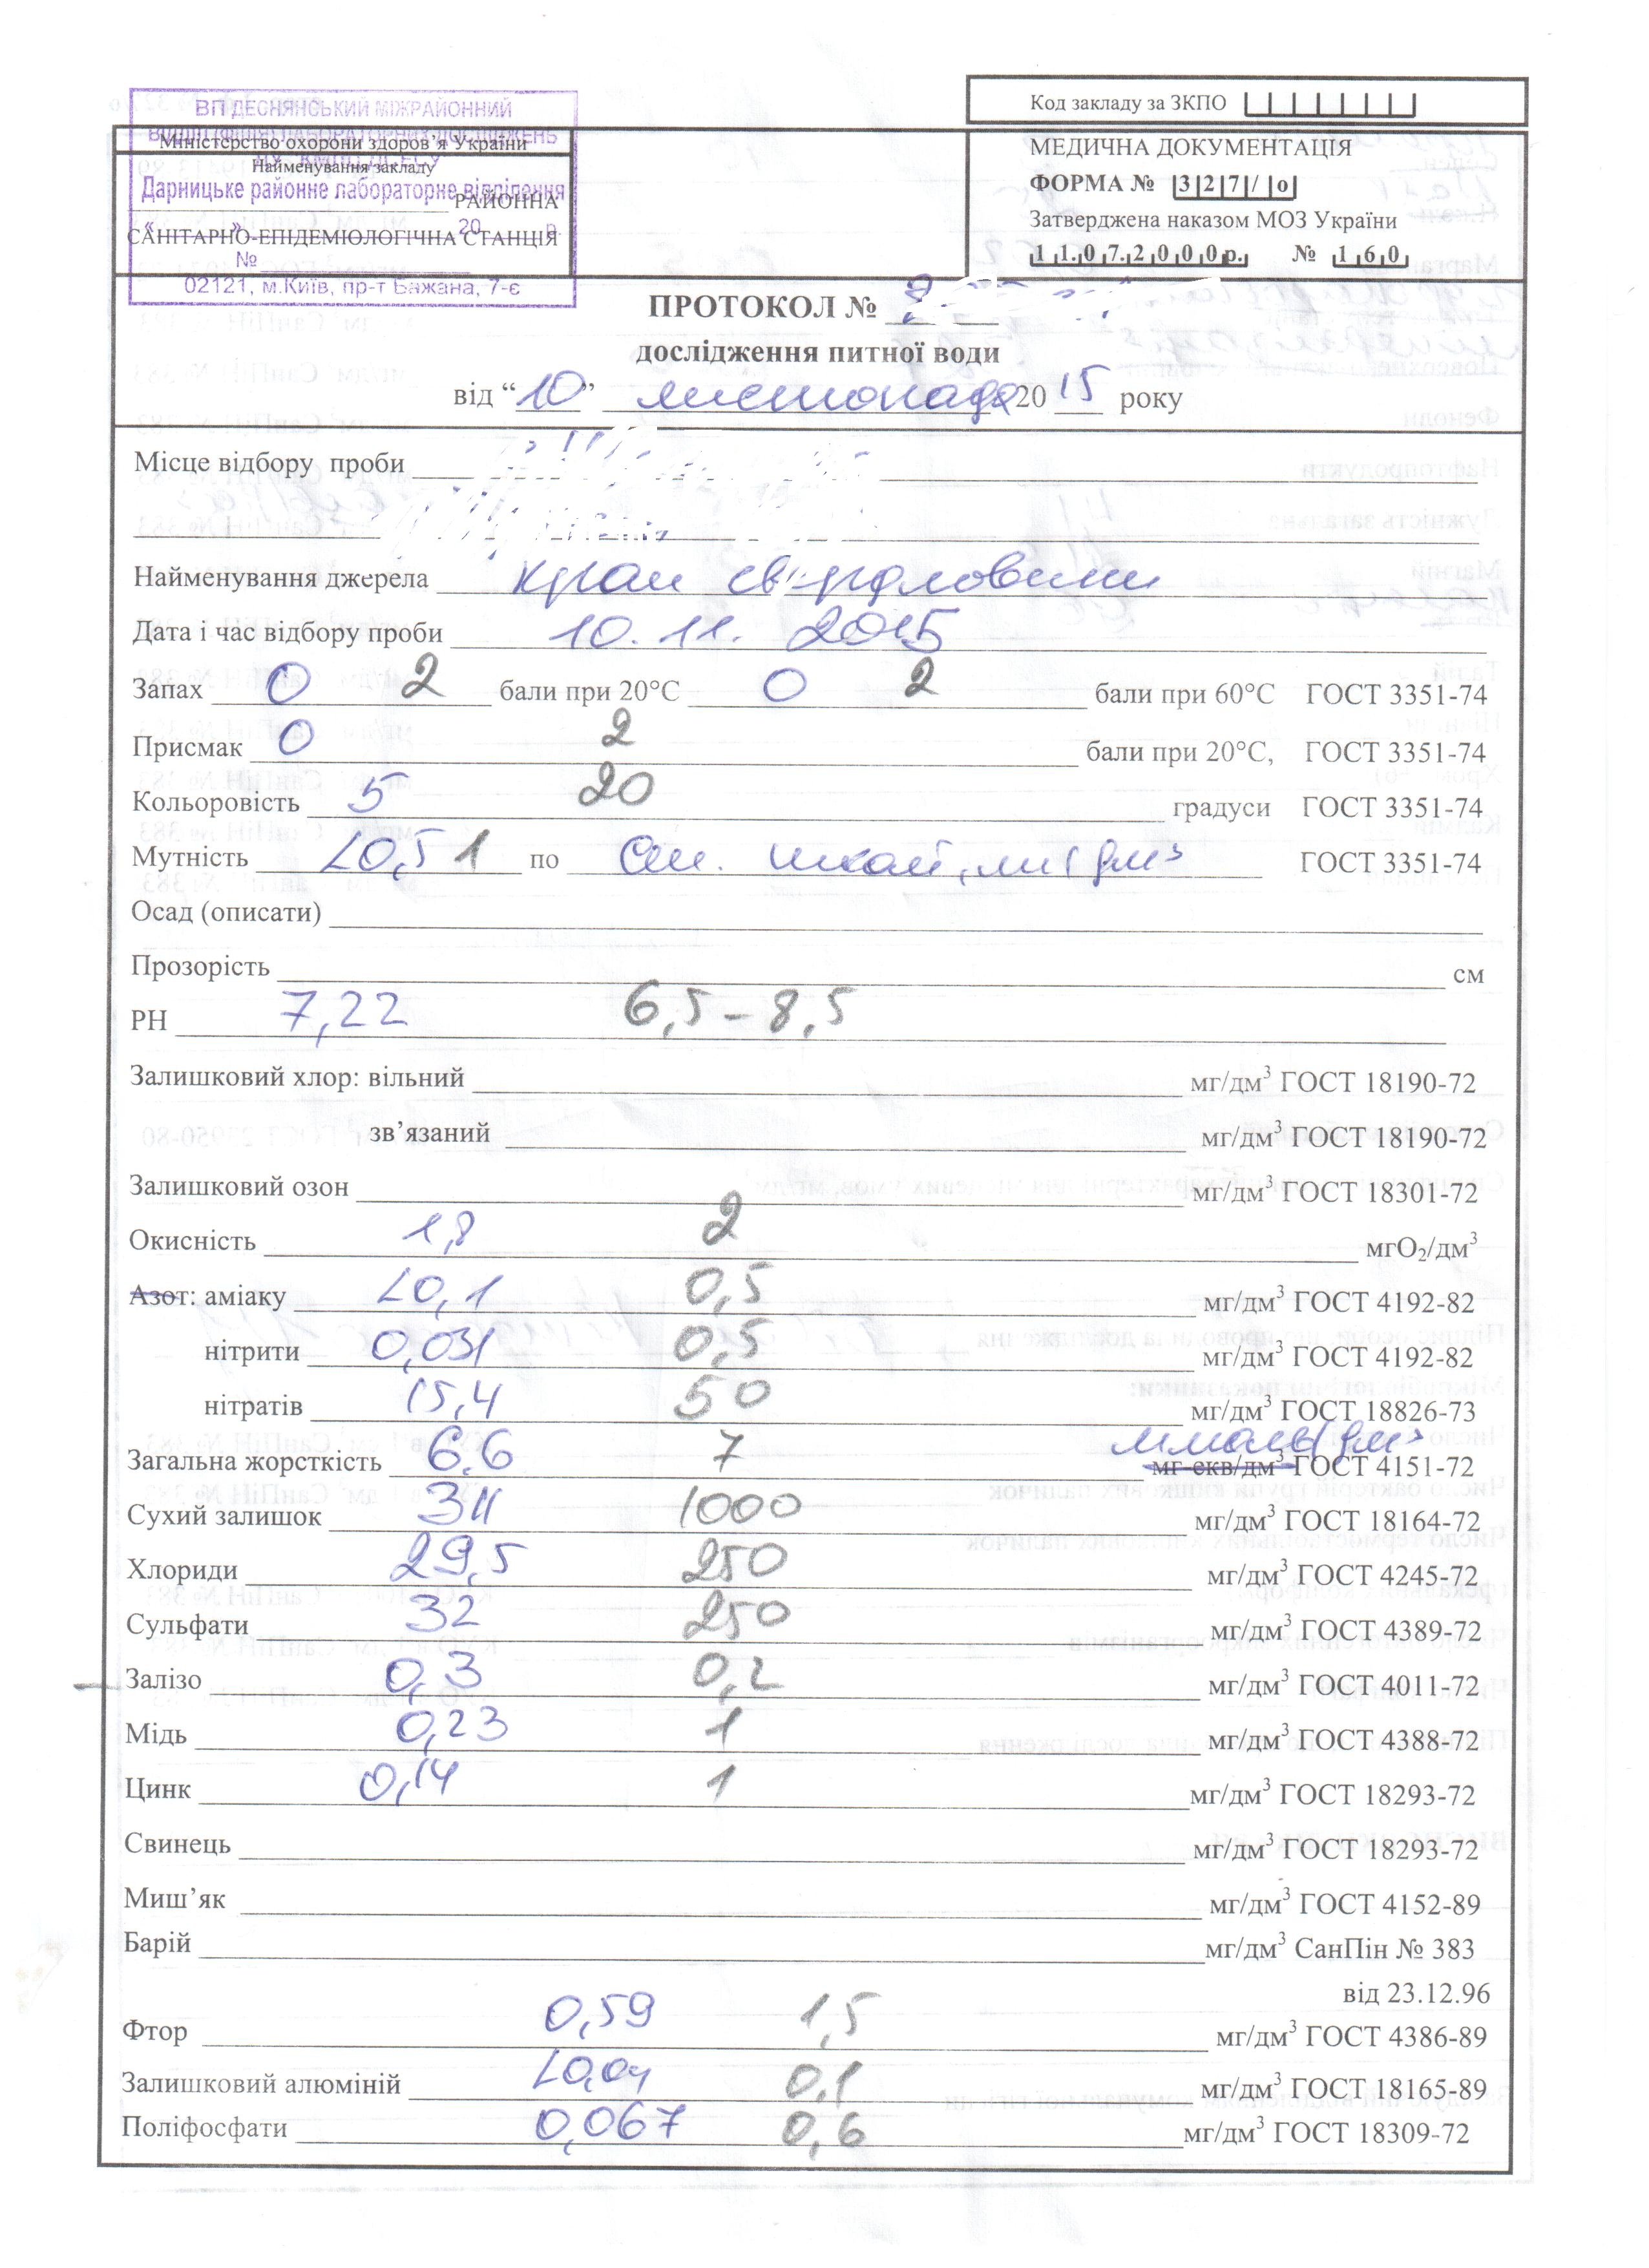 Код закладу за ЗКПО
ВП ДЕСНЯНСЬКИЙ МІЖРАЙОННИЙ
ВІДДІЛ (ФІЛІЯ) ЛАБОРАТОРНИХ ДОСЛІДЖЕНЬ
Міністерство охорони здоров’я України
Найменування закладу
Дарницьке районне лабораторне відділення
РАЙОННА
« » 20 р.
САНІТАРНО-ЕПІДЕМІОЛОГІЧНА СТАНЦІЯ
№
02121, м.Київ, пр-т Бажана, 7-є
МЕДИЧНА ДОКУМЕНТАЦІЯ
ФОРМА № 327/о
Затверджена наказом МОЗ України
11.07.2000р. № 160
ПРОТОКОЛ №
дослідження питної води
від “10” листопада 2015 року
Місце відбору проби
Найменування джерела кран свердловини
Дата і час відбору проби 10.11.2015
Запах 0 2 бали при 20°С 0 2 бали при 60°С ГОСТ 3351-74
Присмак 0 2 бали при 20°С, ГОСТ 3351-74
Кольоровість 5 20 градуси ГОСТ 3351-74
Мутність <0,5 1 по ГОСТ 3351-74
Осад (описати)
Прозорість см
РН 7,22 6,5-8,5
Залишковий хлор: вільний мг/дм³ ГОСТ 18190-72
зв’язаний мг/дм³ ГОСТ 18190-72
Залишковий озон мг/дм³ ГОСТ 18301-72
Окисність 1,8 2 мгО₂/дм³
Азот: аміаку <0,1 0,5 мг/дм³ ГОСТ 4192-82
нітрити 0,031 0,5 мг/дм³ ГОСТ 4192-82
нітратів 15,4 50 мг/дм³ ГОСТ 18826-73
ммоль/дм³
Загальна жорсткість 6.6 7 мг-екв/дм³ ГОСТ 4151-72
Сухий залишок 311 1000 мг/дм³ ГОСТ 18164-72
Хлориди 29,5 250 мг/дм³ ГОСТ 4245-72
Сульфати 32 250 мг/дм³ ГОСТ 4389-72
Залізо 0,3 0,2 мг/дм³ ГОСТ 4011-72
Мідь 0,23 1 мг/дм³ ГОСТ 4388-72
Цинк 0,14 1 мг/дм³ ГОСТ 18293-72
Свинець мг/дм³ ГОСТ 18293-72
Миш’як мг/дм³ ГОСТ 4152-89
Барій мг/дм³ СанПін № 383
від 23.12.96
Фтор 0,59 1,5 мг/дм³ ГОСТ 4386-89
Залишковий алюміній <0,04 0,1 мг/дм³ ГОСТ 18165-89
Поліфосфати 0,067 0,6 мг/дм³ ГОСТ 18309-72